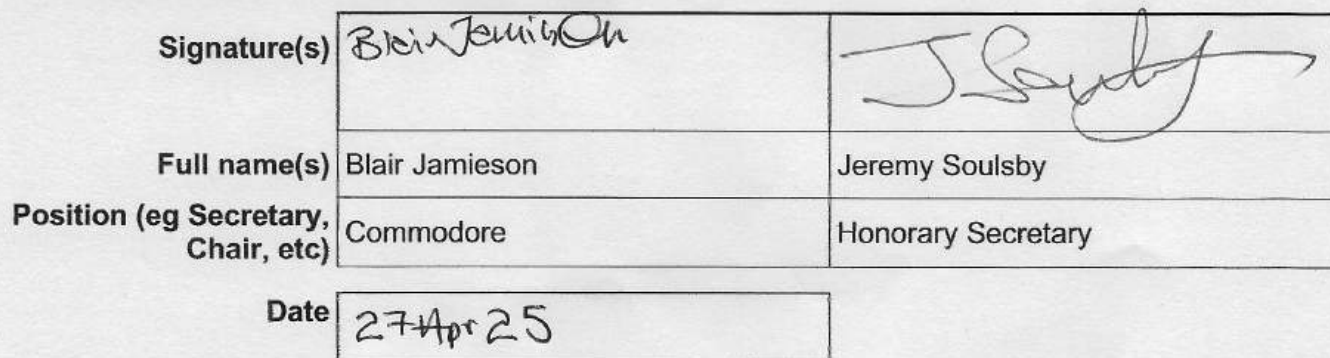 Signature(s) Blair Jamieson J Soulsby
Full name(s) Blair Jamieson Jeremy Soulsby
Position (eg Secretary,
Chair, etc) Commodore Honorary Secretary
Date 27 Apr 25